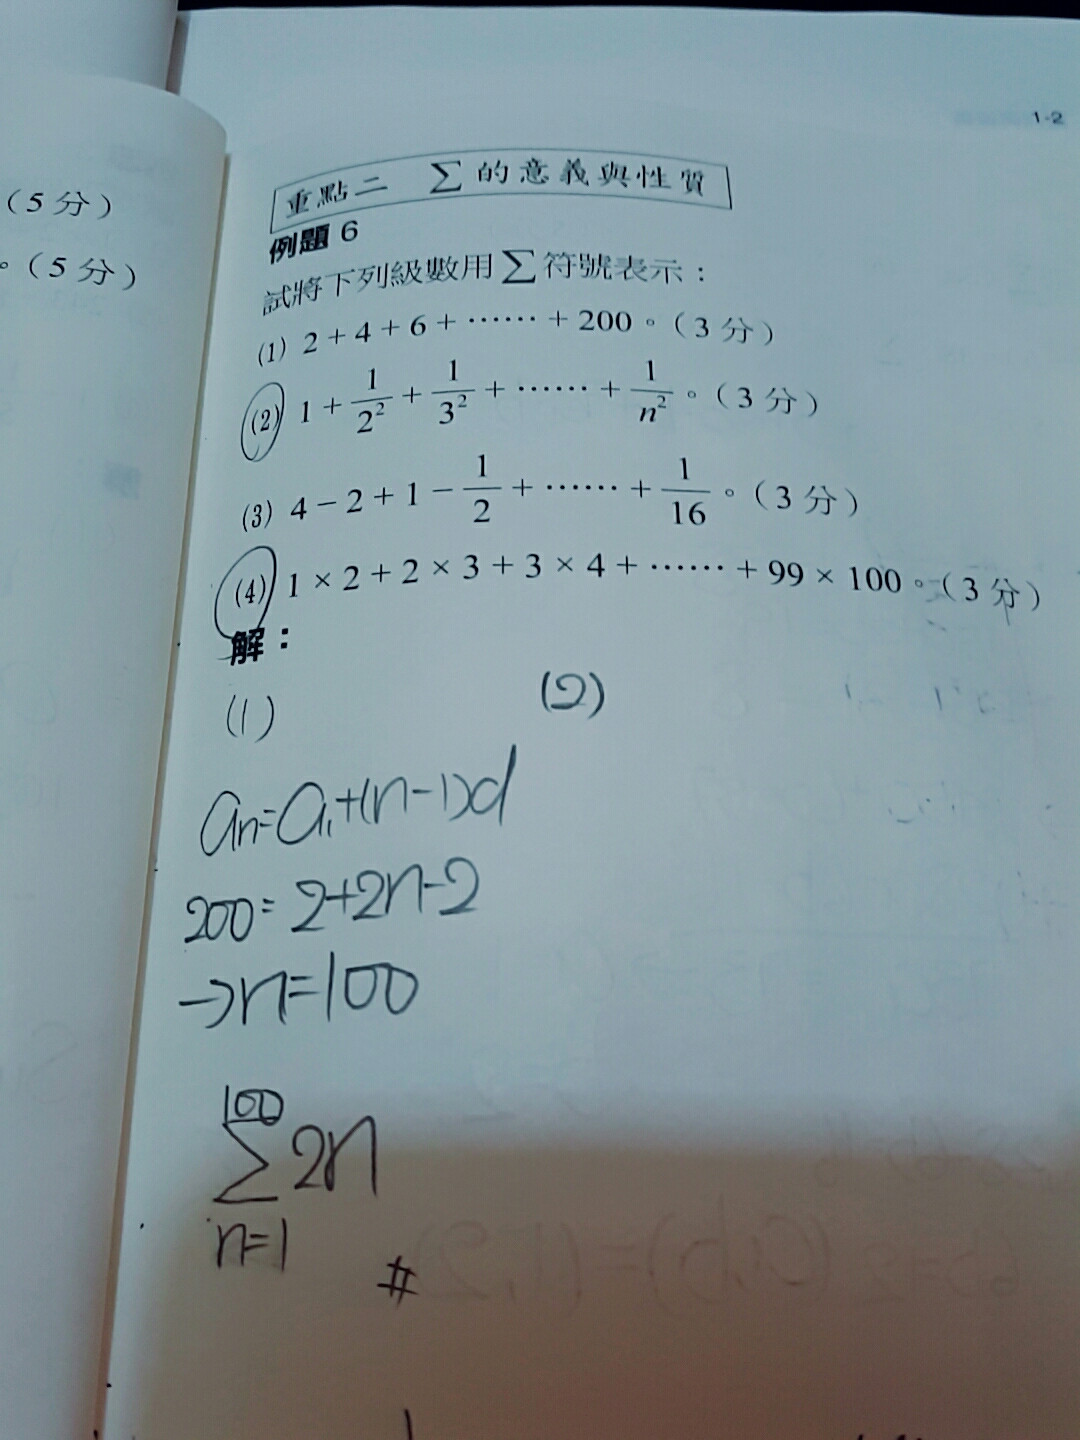 1-2
(5分)
。(5分)
重點二 Σ的意義與性質
例題 6
試將下列級數用Σ符號表示:
(1) 2+4+6+……+200。(3分)
(2) 1+1/2²+1/3²+……+1/n²。(3分)
(3) 4-2+1-1/2+……+1/16。(3分)
(4) 1×2+2×3+3×4+……+99×100。(3分)
解:
(1) (2)
an=a₁+(n-1)d
200=2+2n-2
→n=100
100
Σ2n
n=1
#